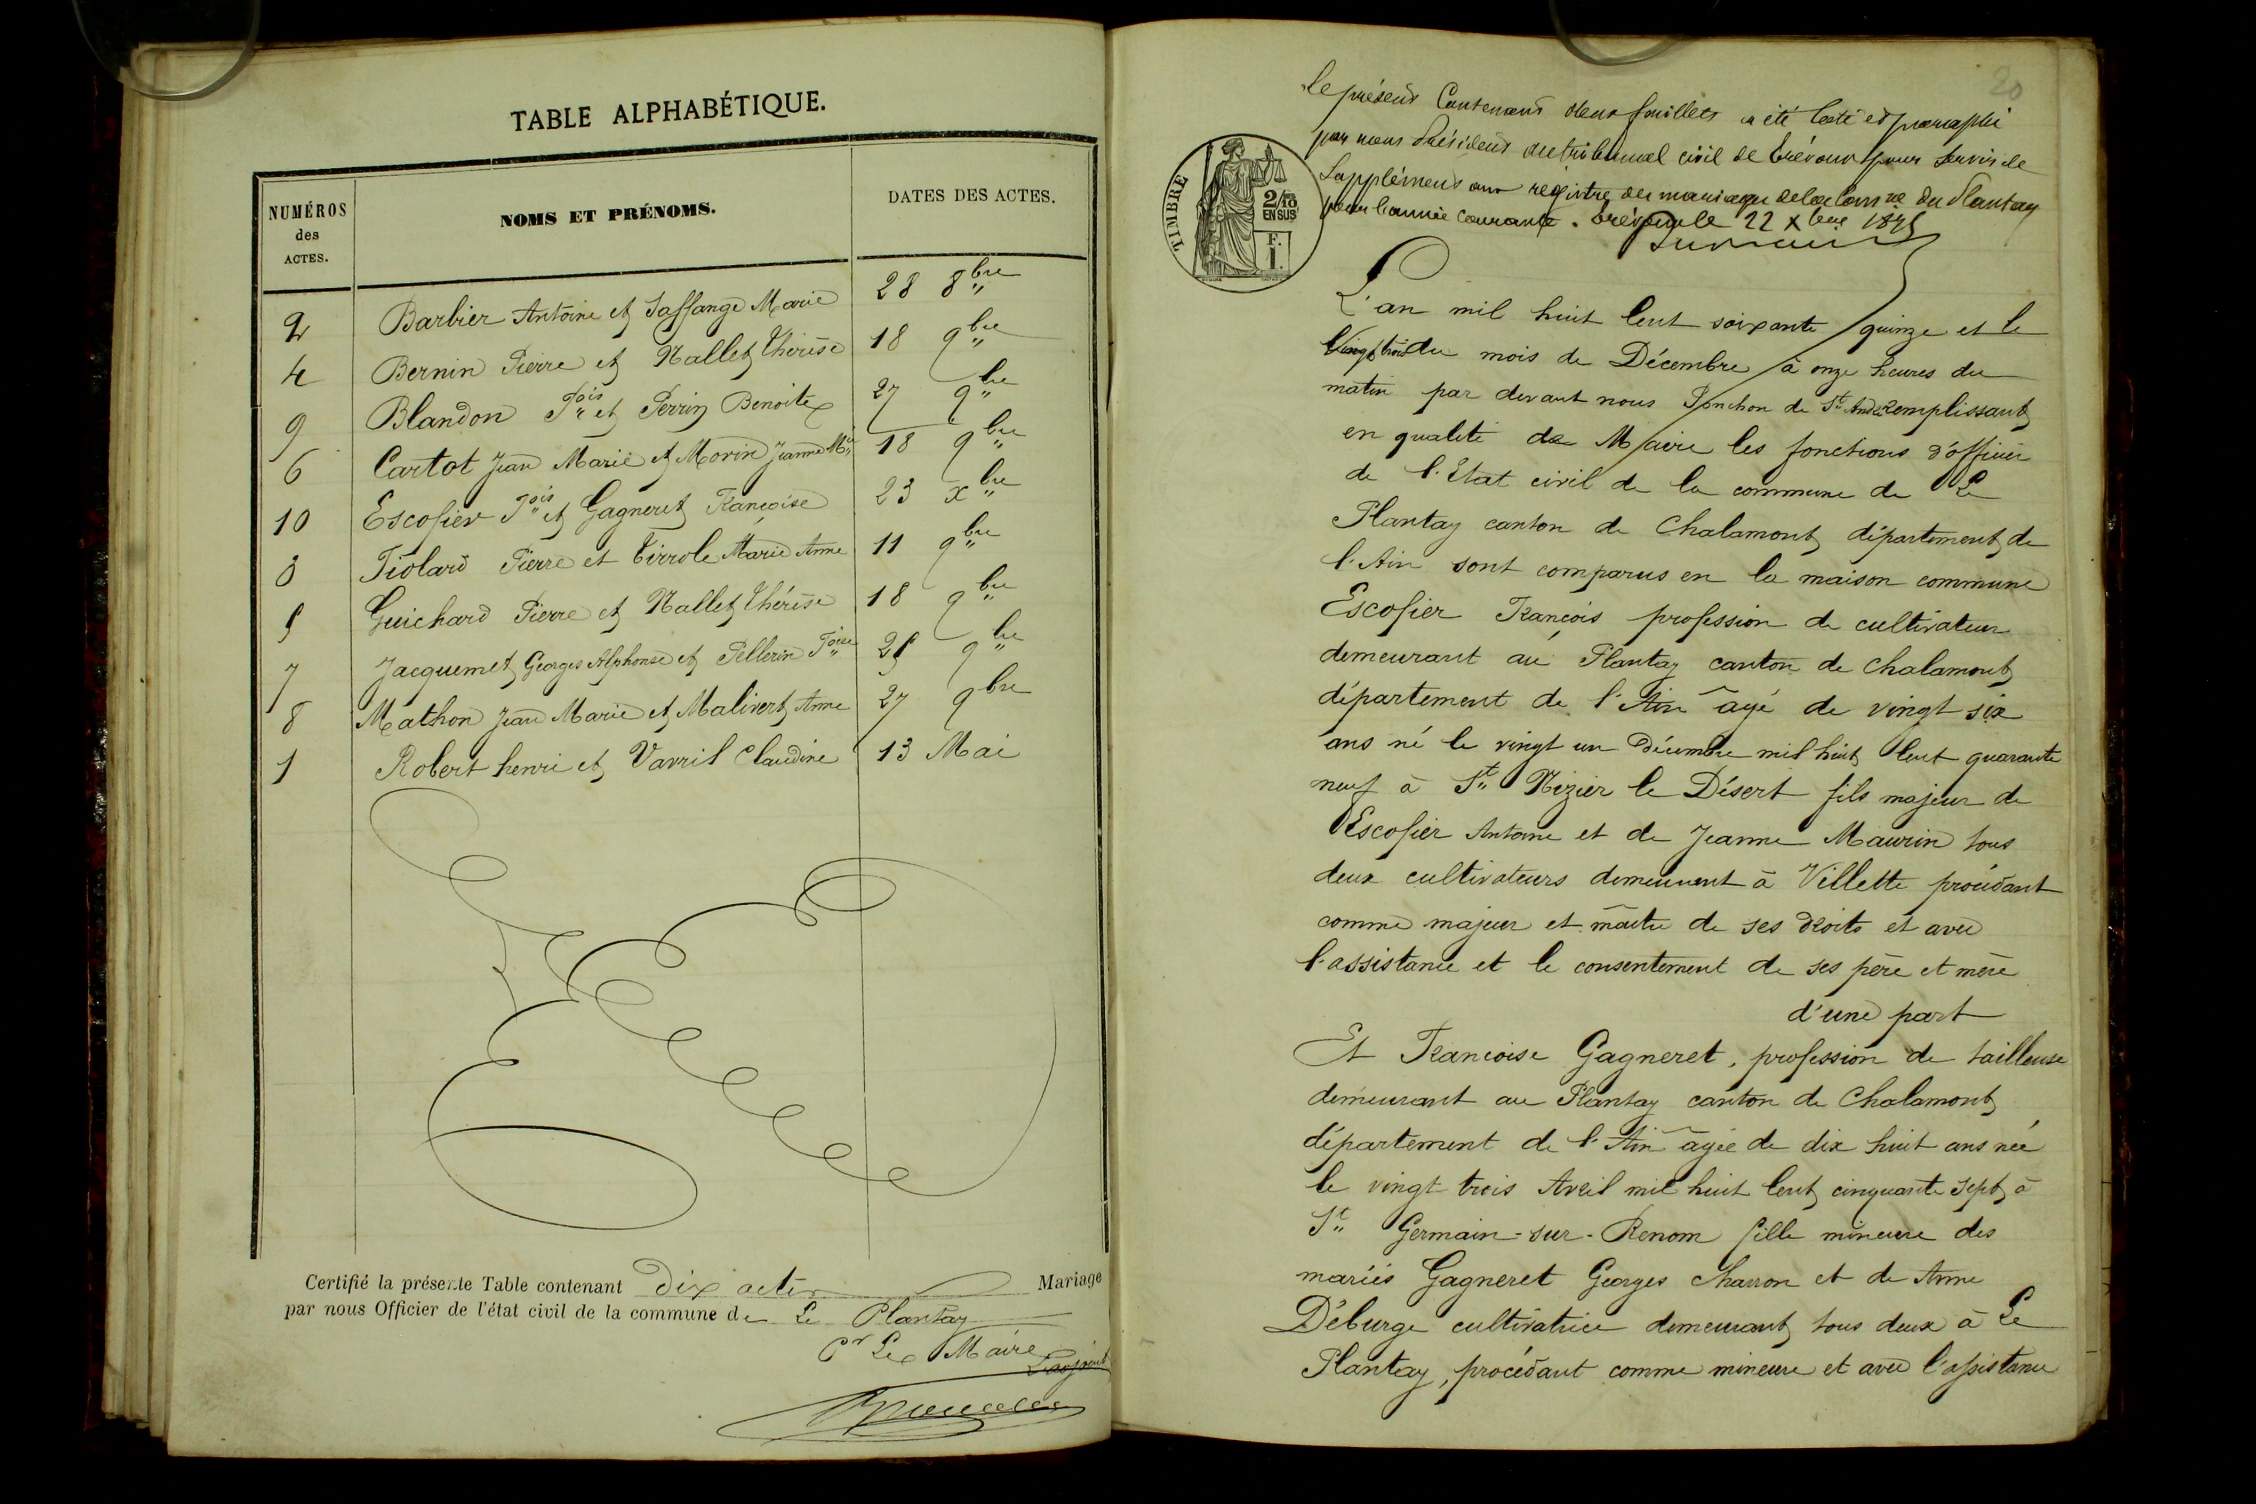 TABLE ALPHABÉTIQUE.
NUMÉROS
des
ACTES.
NOMS ET PRÉNOMS.
DATES DES ACTES.
2 Barbier Antoine et Saffange Marie 28 8bre
4 Bernin Pierre et Nallet Thérèse 18 9bre
9 Blandon Fois et Perrin Benoite 27 9bre
6 Cartot Jean Marie et Morin Jeanne Mie 18 9bre
10 Escofier Fois et Gagneret Françoise 23 xbre
3 Fiolard Pierre et Tirrole Marie Anne 11 9bre
5 Guichard Pierre et Nallet Thérèse 18 9bre
7 Jacquemet Georges Alphonse et Pellerin Foise 25 9bre
8 Mathon Jean Marie et Malivert Anne 27 9bre
1 Robert henri et Vavril Claudine 13 Mai
Certifié la présente Table contenant Dix actes Mariage
par nous Officier de l'état civil de la commune de Le Plantay
Pr Le Maire
L'adjoint
20
Le présent Contenant deux feuillets a été coté et paraphé
par nous Président du tribunal civil de Trévoux pour servir de
Supplément aux registre des mariages de la Comne du Plantay
pour l'année courante. Trévoux le 22 Xbre 1875
TIMBRE
2/10
EN SUS
F.
1.
L'an mil huit Cent soixante quinze et le
Vingt trois du mois de Décembre à onze heures du
matin par devant nous Ponchon de St André remplissant
en qualité de Maire les fonctions d'officier
de l'Etat civil de la commune de Le
Plantay canton de Chalamont département de
l'Ain sont comparus en la maison commune
Escofier François profession de cultivateur
demeurant au Plantay canton de Chalamont
département de l'Ain âgé de vingt six
ans né le vingt un Décembre mil huit Cent quarante
neuf à St Nizier le Désert fils majeur de
Escofier Antoine et de Jeanne Maurin tous
deux cultivateurs demeurent à Villette procédant
comme majeur et maître de ses droits et avec
l'assistance et le consentement de ses père et mère
d'une part
Et Francoise Gagneret, profession de tailleuse
demeurant au Plantay canton de Chalamont
département de l'Ain âgée de dix huit ans née
le vingt trois Avril mil huit Cent cinquante sept à
St Germain-sur-Renom fille mineure des
mariés Gagneret Georges charron et de Anne
Déburge cultivatrice demeurant tous deux à Le
Plantay, procédant comme mineure et avec l'assistance